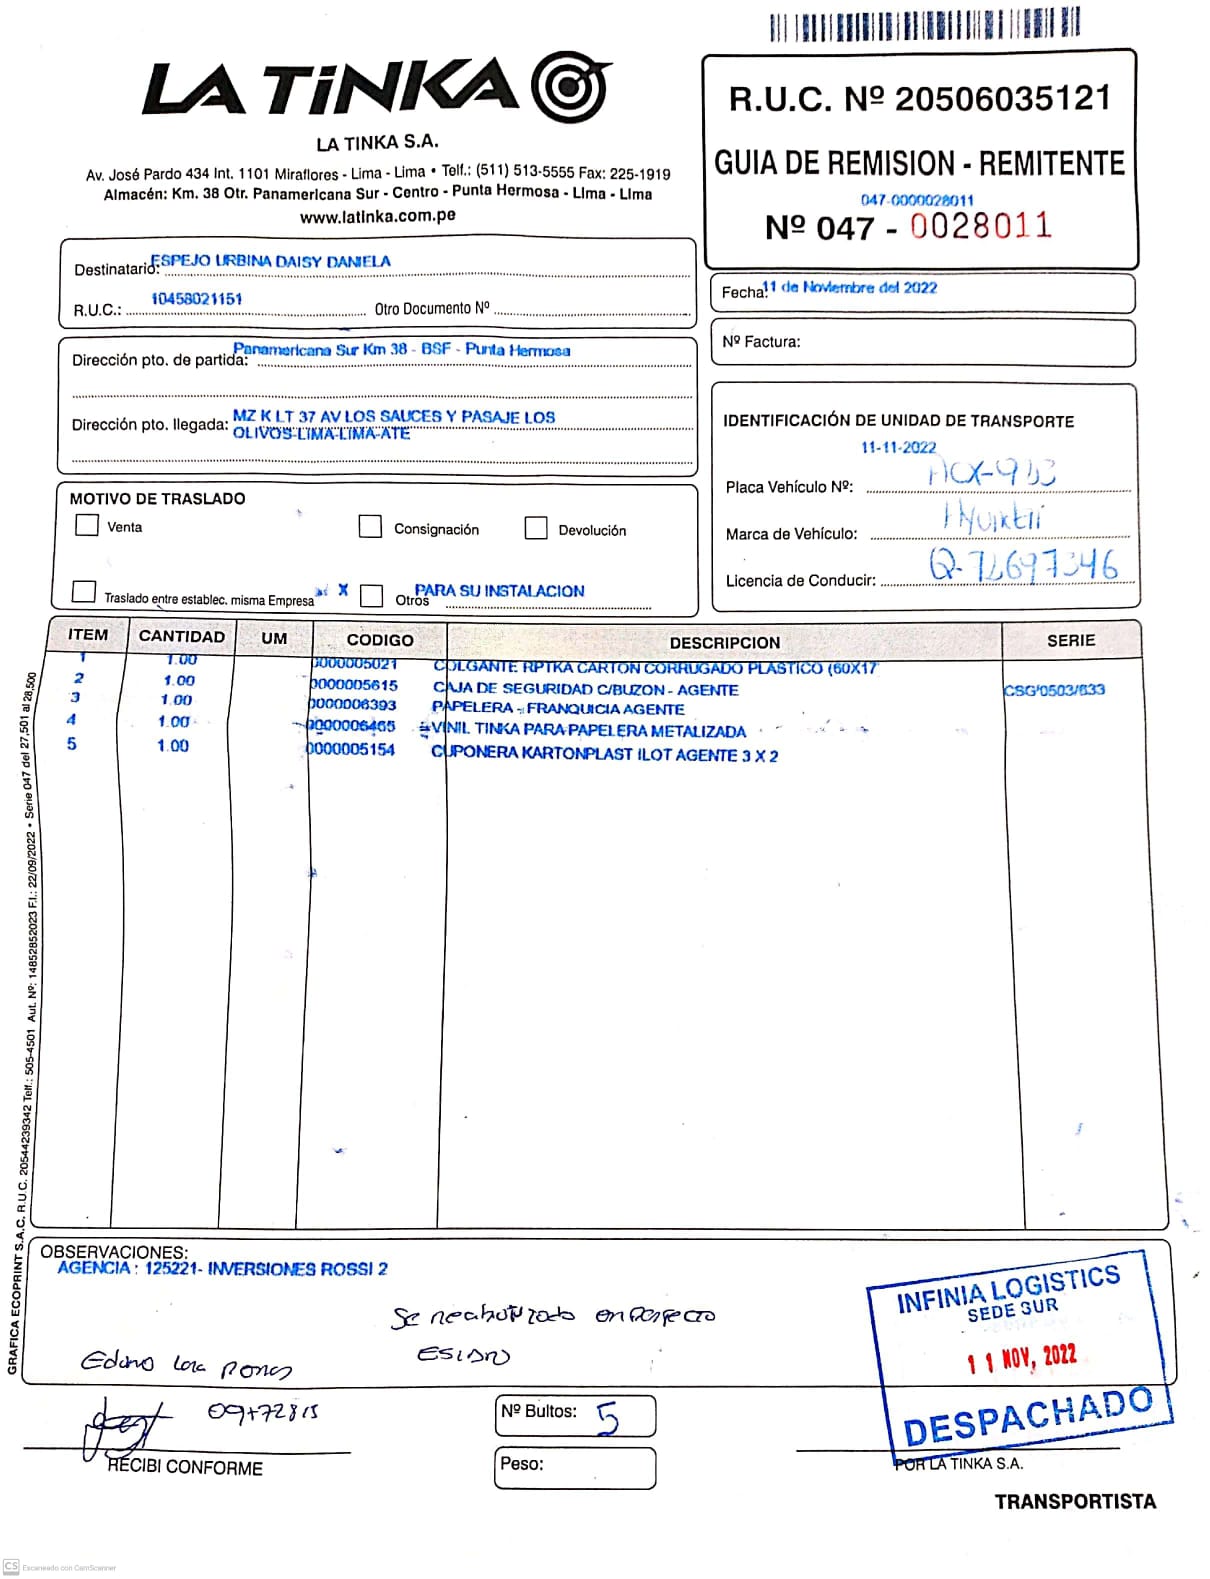 LA TiNKA
LA TINKA S.A.
Av. José Pardo 434 Int. 1101 Miraflores - Lima - Lima • Telf.: (511) 513-5555 Fax: 225-1919
Almacén: Km. 38 Otr. Panamericana Sur - Centro - Punta Hermosa - Lima - Lima
www.latinka.com.pe
R.U.C. Nº 20506035121
GUIA DE REMISION - REMITENTE
047-0000028011
Nº 047 - 0028011
Destinatario: ESPEJO URBINA DAISY DANIELA
R.U.C.: 10458021151 Otro Documento Nº
Fecha: 11 de Noviembre del 2022
Nº Factura:
Dirección pto. de partida: Panamericana Sur Km 38 - BSF - Punta Hermosa
Dirección pto. llegada: MZ K LT 37 AV LOS SAUCES Y PASAJE LOS
OLIVOS-LIMA-LIMA-ATE
IDENTIFICACIÓN DE UNIDAD DE TRANSPORTE
11-11-2022
Placa Vehículo Nº:
Marca de Vehículo:
Licencia de Conducir: Q-72697346
MOTIVO DE TRASLADO
Venta Consignación Devolución
Traslado entre establec. misma Empresa X Otros PARA SU INSTALACION
ITEM CANTIDAD UM CODIGO DESCRIPCION SERIE
1 1.00 0000005021 COLGANTE RPTKA CARTON CORRUGADO PLASTICO (60X17
2 1.00 0000005615 CAJA DE SEGURIDAD C/BUZON - AGENTE CSG'0503/633
3 1.00 0000006393 PAPELERA - FRANQUICIA AGENTE
4 1.00 0000006465 VINIL TINKA PARA PAPELERA METALIZADA
5 1.00 0000005154 CUPONERA KARTONPLAST ILOT AGENTE 3 X 2
GRAFICA ECOPRINT S.A.C. R.U.C. 20544239342 Telf.: 505-4501 Aut. Nº: 14852852023 F.I.: 22/09/2022 • Serie 047 del 27,501 al 28,500
OBSERVACIONES:
AGENCIA : 125221- INVERSIONES ROSSI 2
Se
INFINIA LOGISTICS
SEDE SUR
11 NOV, 2022
DESPACHADO
RECIBI CONFORME
Nº Bultos: 5
Peso:
POR LA TINKA S.A.
TRANSPORTISTA
CS Escaneado con CamScanner